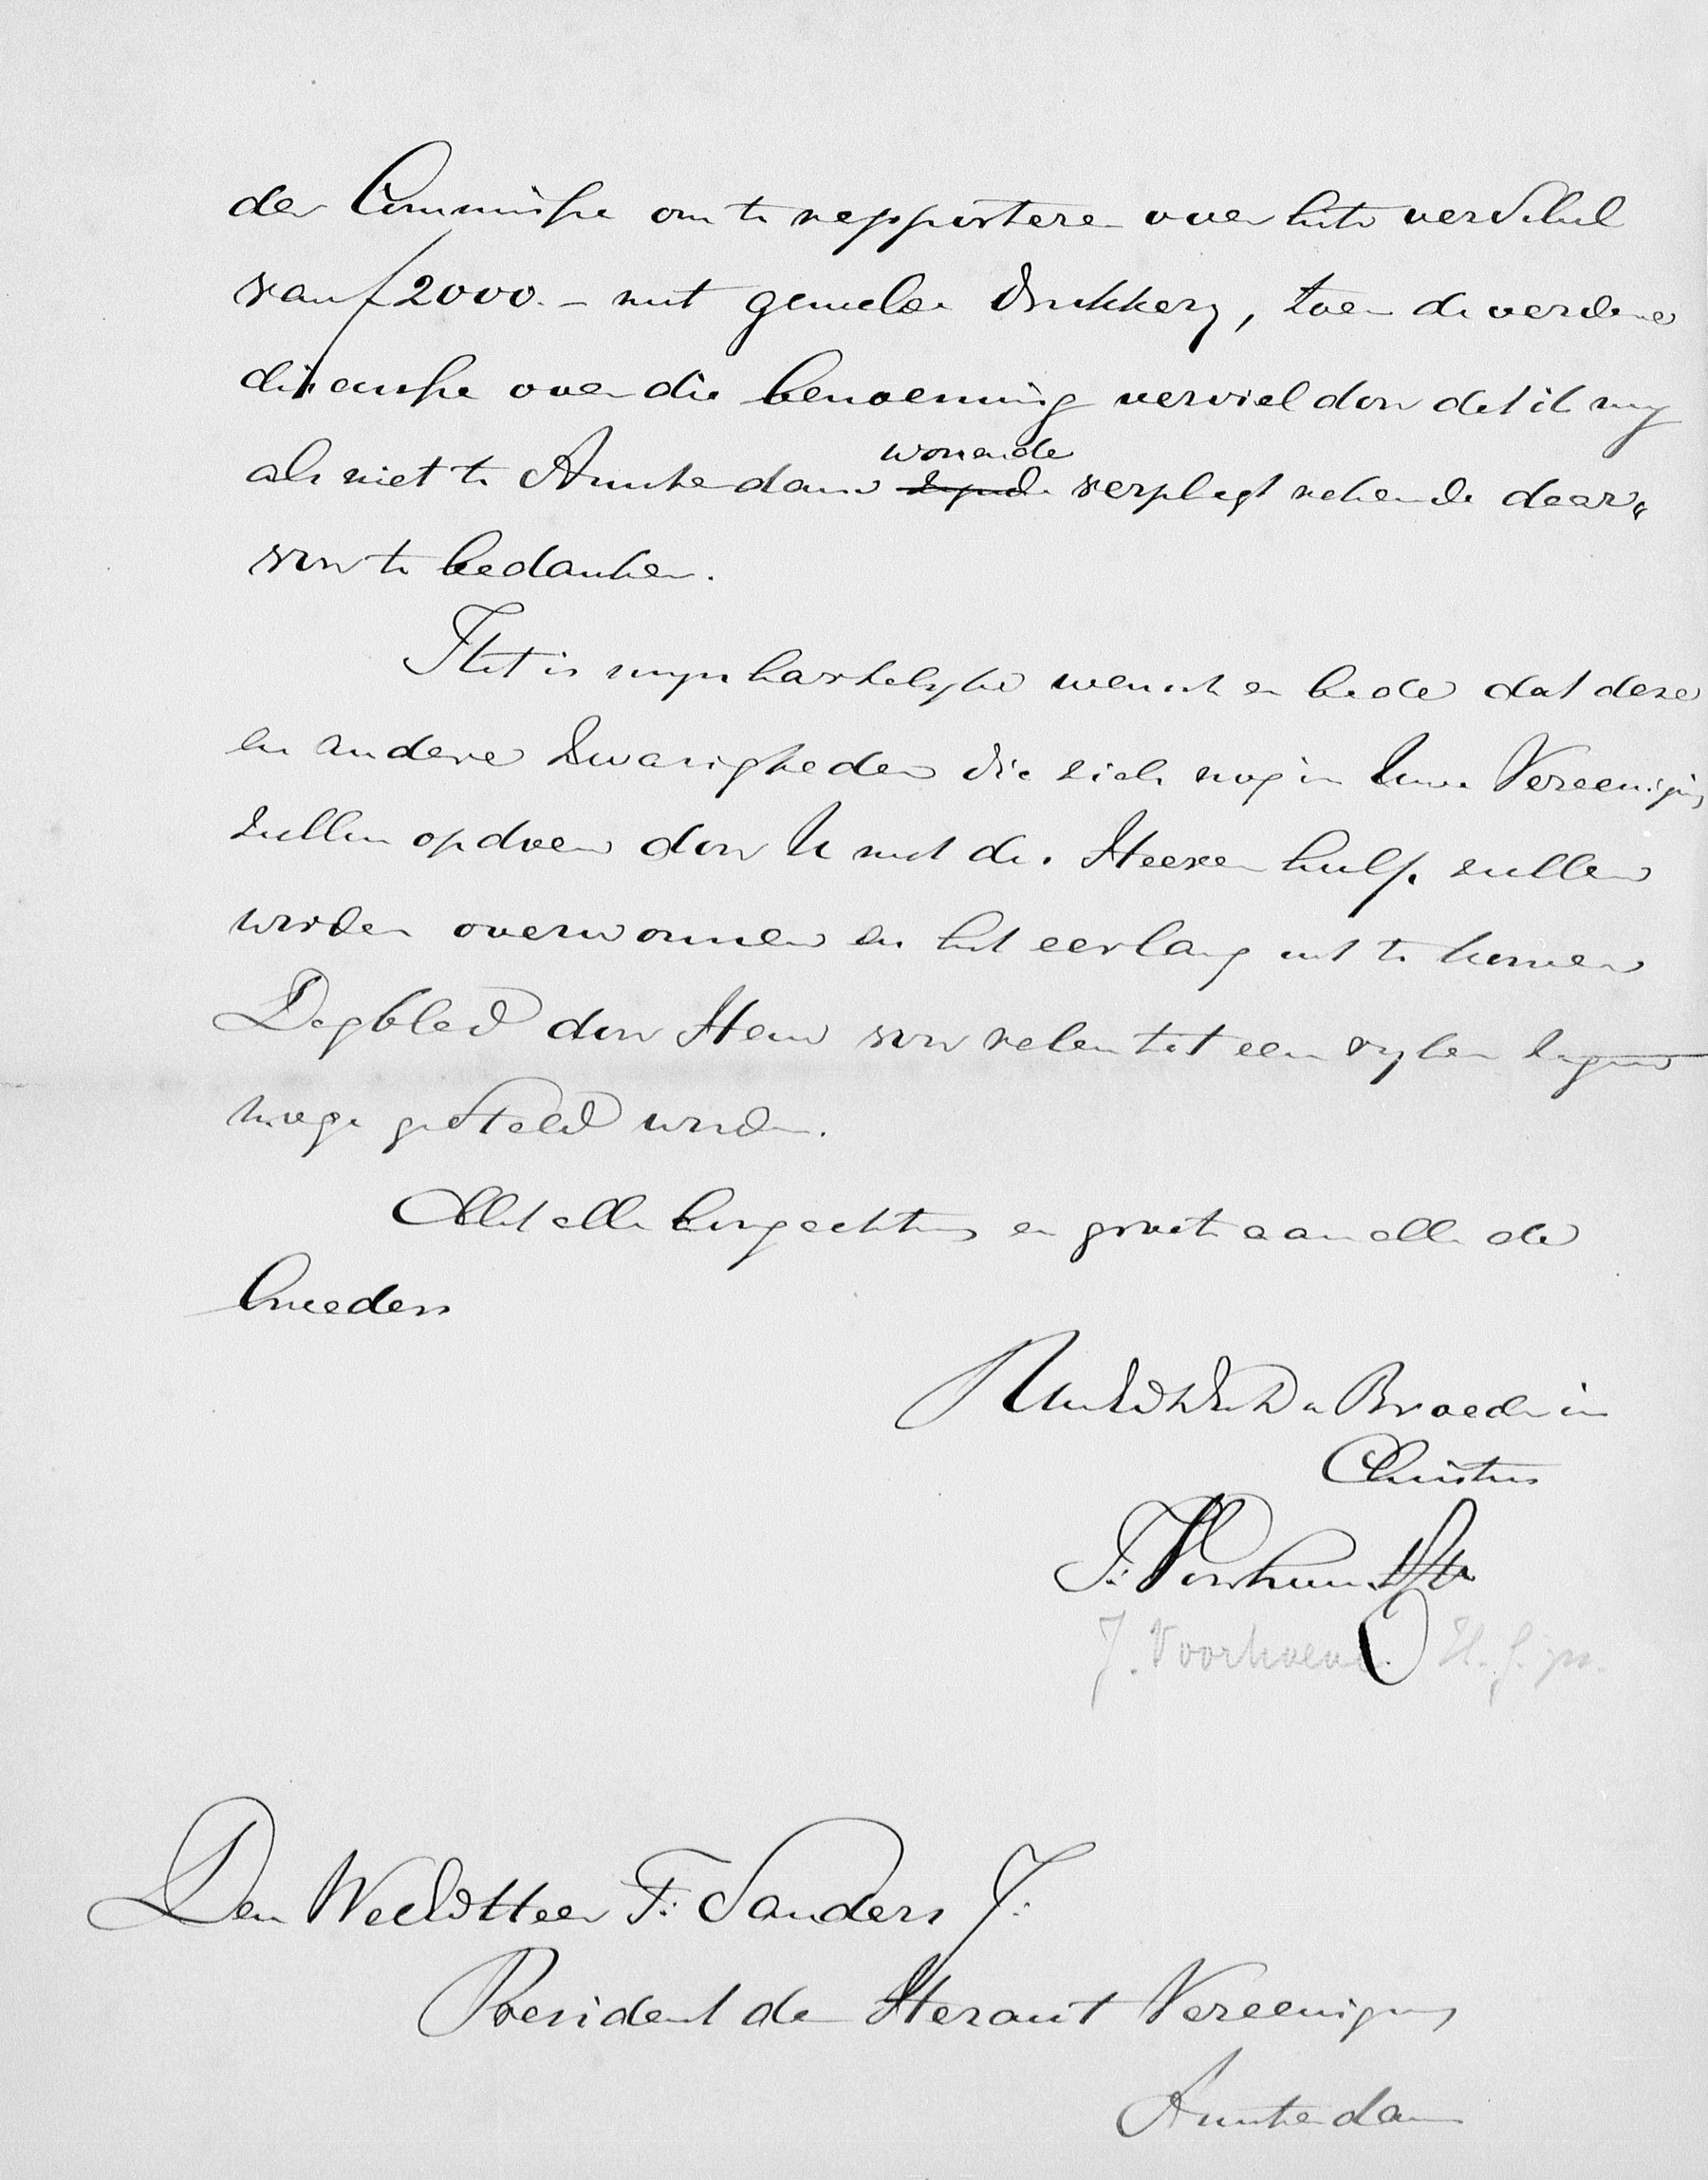 der Commissie om te rapporteren over het verschil
van ƒ2000.- met gemelde drukkery, toen de verdere
discussie over die benoeming verviel door dat ik my
als niet te Amsterdam wonende verplegt rekende daar„
voor te bedanken.
Het is myn hartelyke wensch en bede dat deze
en andere zwarigheden die zich nog in Uwe Vereeniging
zullen opdoen door U met des Heeren hulp zullen
worden overwonnen en het eerlang uit te komen
Dagblad door Hem voor velen tot een ryken zegen
moge gesteld worden.
Met alle hoogachting en groete aan alle de
broeders
UwEdDWD Broeder in
Christus
J: Voorhoeve HCz
J. Voorhoeve H.C.zn.
Den WelEdHeer F: Sanders J:
President der Heraut Vereeniging
Amsterdam